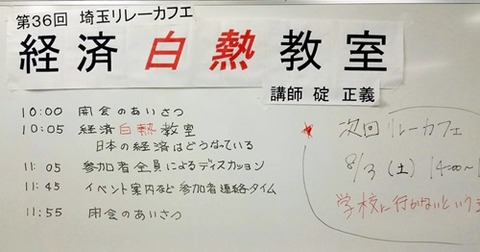 第36回 埼玉リレーカフェ
経済白熱教室
講師 碇 正義
10:00 開会のあいさつ
10:05 経済白熱教室
日本の経済はどうなっている
11:05 参加者全員によるディスカッション
11:45 イベント案内など参加者連絡タイム
11:55 閉会のあいさつ
次回リレーカフェ
8/3(土) 14:00~1
学校に行かないという